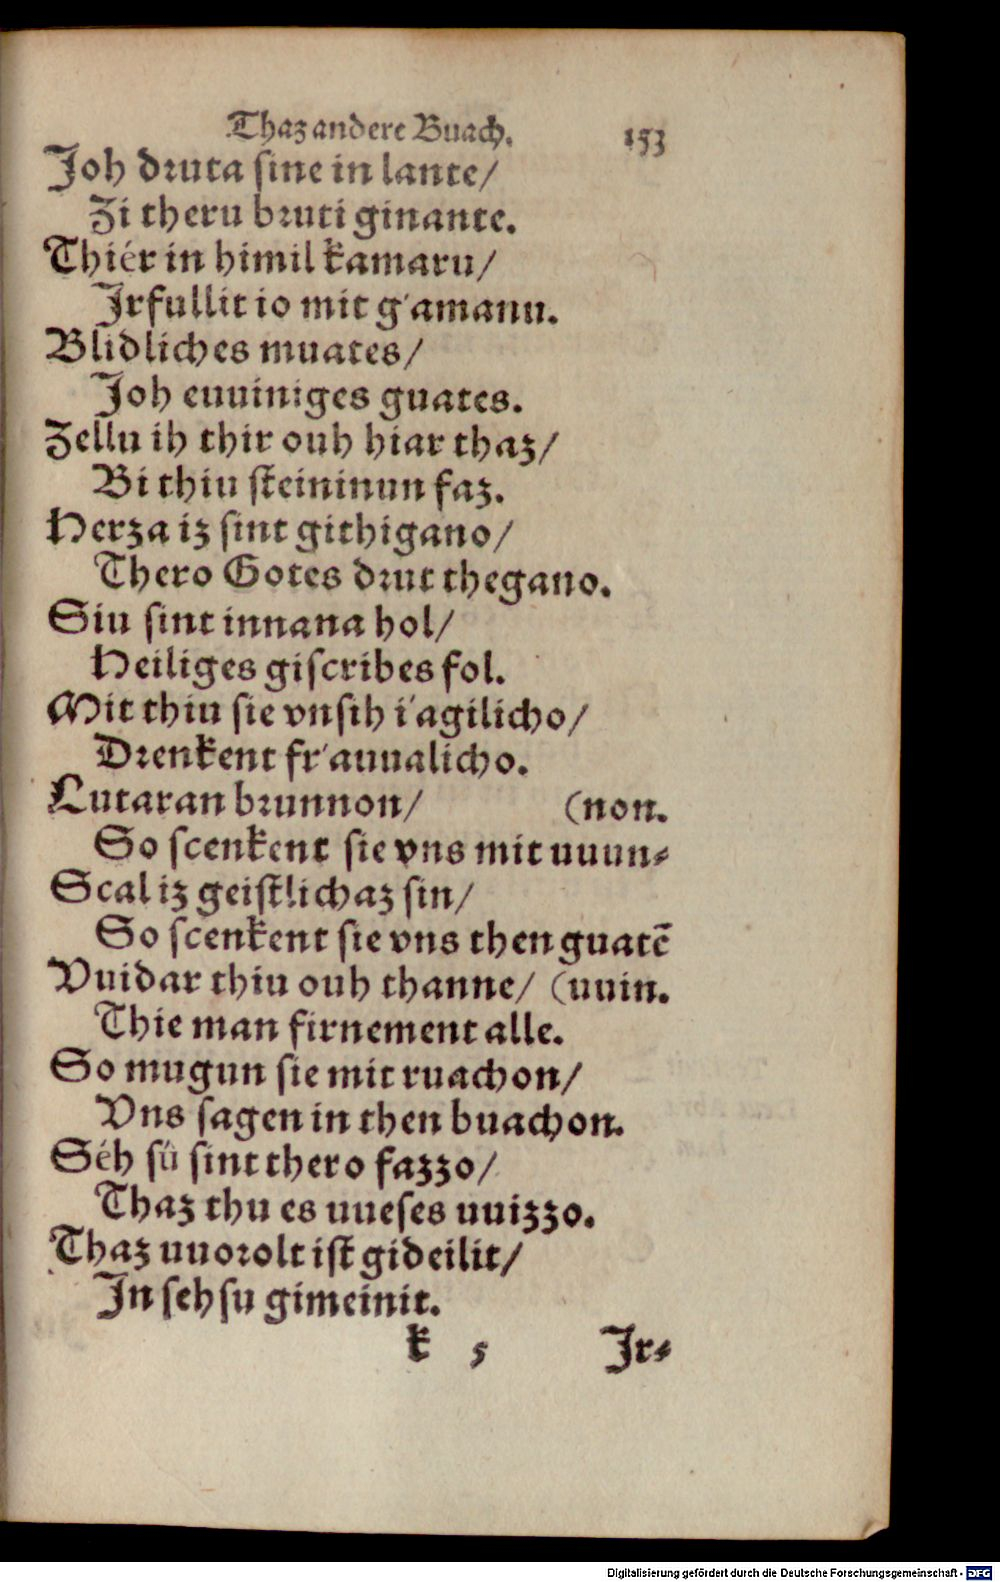 Thaz andere Buach. 153
Joh druta sine in lante/
Zi theru bruti ginante.
Thiér in himil kamaru/
Jrfullit io mit g'amanu.
Blidliches muates/
Joh euuiniges guates.
Zellu ih thir ouh hiar thaz/
Bi thiu steininun faz.
Herza iz sint githigano/
Thero Gotes drut thegano.
Siu sint innana hol/
Heiliges giscribes fol.
Mit thiu sie vnsih i'agilicho/
Drenkent fr'auualicho.
Lutaran brunnon/ (non.
So scenkent sie vns mit uuun-
Scal iz geistlichaz sin/
So scenkent sie vns then guatē
Vuidar thiu ouh thanne/ (uuin.
Thie man firnement alle.
So mugun sie mit ruachon/
Vns sagen in then buachon.
Séh sû sint thero fazzo/
Thaz thu es uueses uuizzo.
Thaz uuorolt ist gideilit/
In sehsu gimeinit.
k 5 Jr-
Digitalisierung gefördert durch die Deutsche Forschungsgemeinschaft - DFG